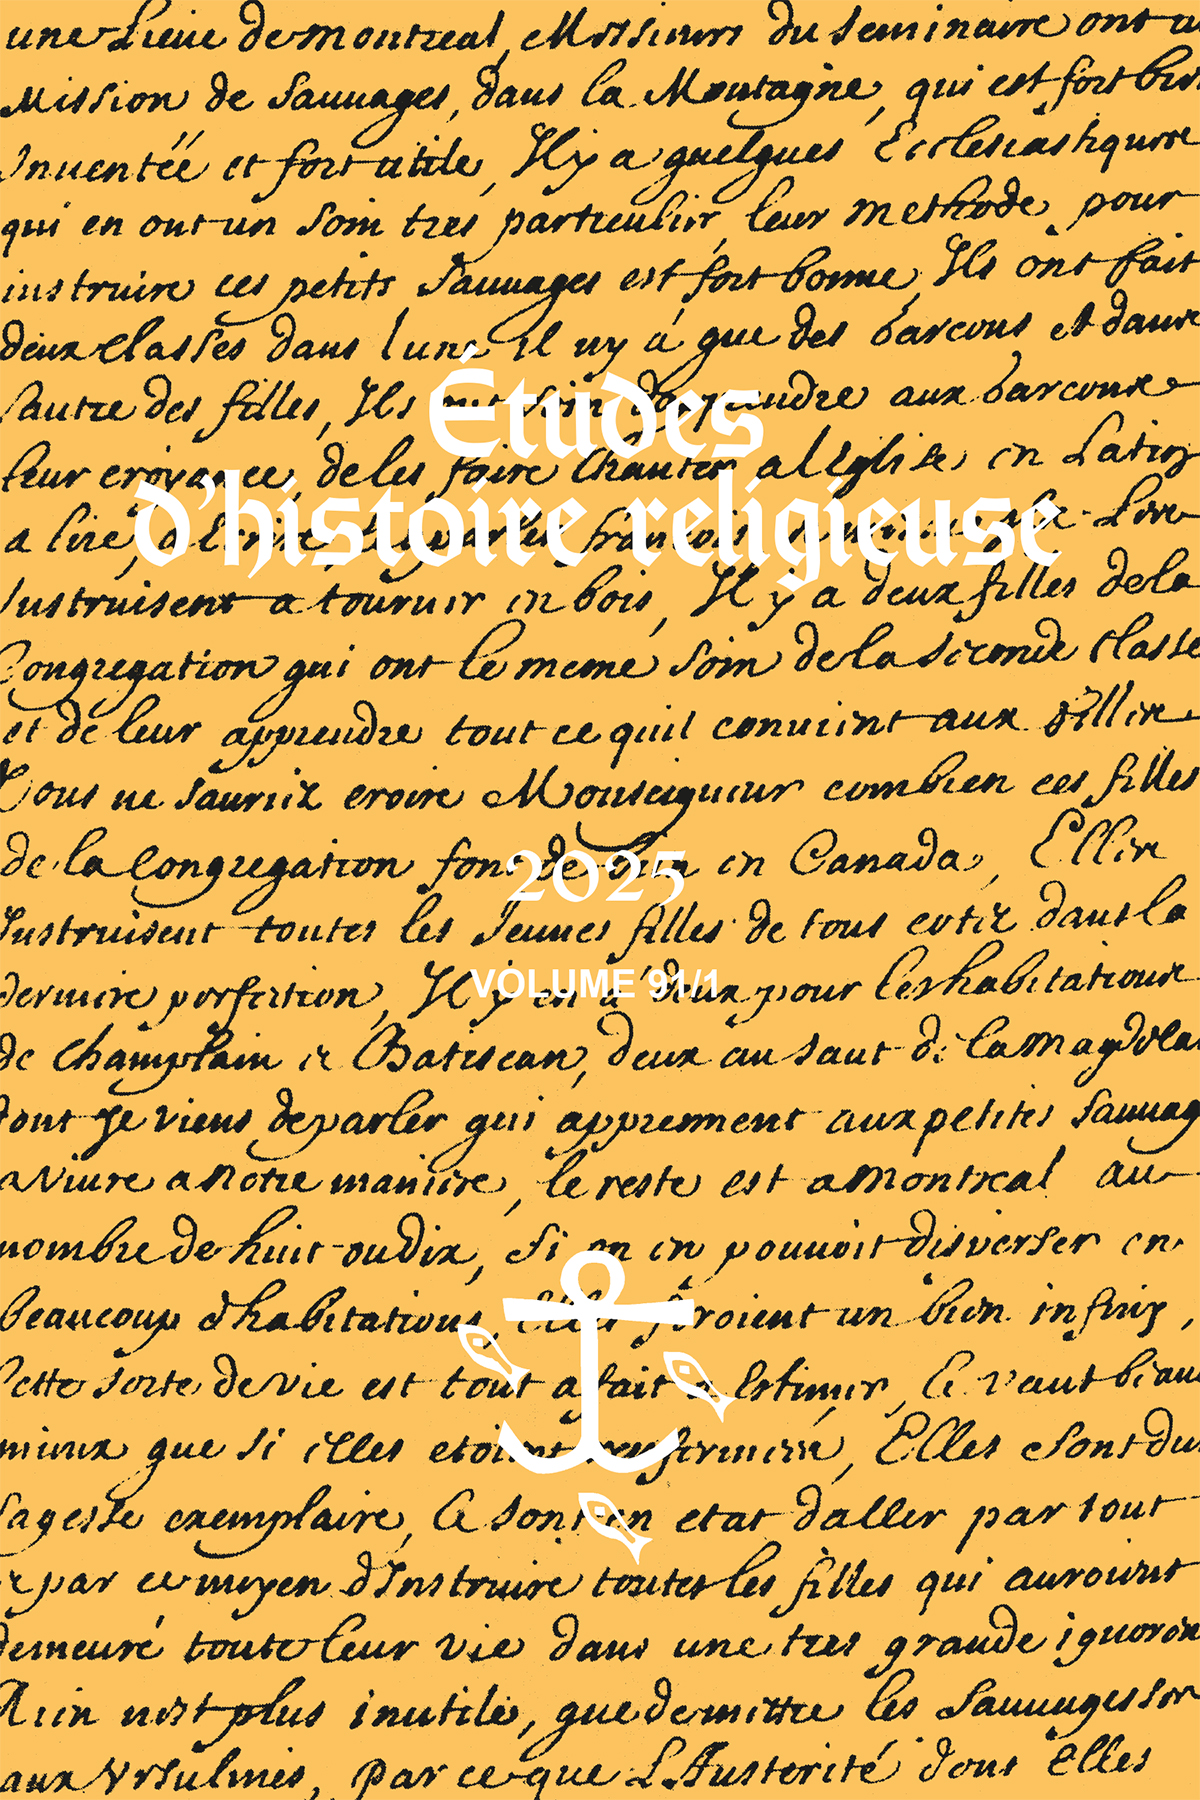 une Lieue de montreal, Messieurs du seminaire ont u
Mission de Sauuages, dans la Montagne, qui est fort bien
Inuentéé et fort utile, Il y a quelques Ecclesiastiques
qui en ont un soin tres particulier, leur methode pour
instruire ces petits Sauuages est fort bonne, Ils ont fait
deux classes dans lune il ny a que des Garcons et dans
lautre des filles, Ils ont soin dapprendre aux Garcons
Études
leur croyance, de les faire chanter a lEglise en Latin
d'histoire religieuse
a lire, a Ecrire, a parler francois
Instruisent a tourner en bois, Il y a deux filles dela
Congregation qui ont le meme soin de la seconde classe
et de leur apprendre tout ce quil conuient aux filles
Vous ne sauriez croire Monseigneur combien ces filles
de la Congregation font de bien en Canada, Elles
2025
Instruisent toutes les Jeunes filles de tous cotez dans la
VOLUME 91/1
derniere perfection, Il y en a deux pour les habitations
de Champlain et Batiscan, deux au saut de la Magdelai
dont Je viens deparler qui apprennent aux petites Sauuag
a viure a notre maniere, le reste est a Montreal au
nombre de huit ou dix, Si on en pouuoit disperser en
beaucoup dhabitations, Elles feroient un bien infiny,
Cette sorte de vie est tout a fait a Estimer, Ce vaut beau
mieux que si elles etoient renfermées, Elles sont dun
sagesse exemplaire, Et sont en etat daller par tout
et par ce moyen dInstruire toutes les filles qui auroient
demeuré toute leur vie dans une tres grande ignoran
Rien nest plus inutile, que de mettre les Sauuagesses
aux Vrsulines, par ce que LAusterité dont Elles